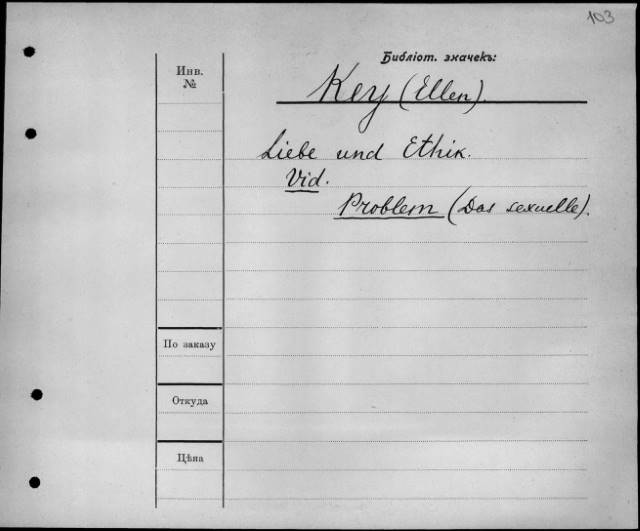 103
Библіот. значекъ:
Инв.
№
Key (Ellen).
Liebe und Ethik.
Vid.
Problem (Das sexuelle).
По заказу
Откуда
Цѣна